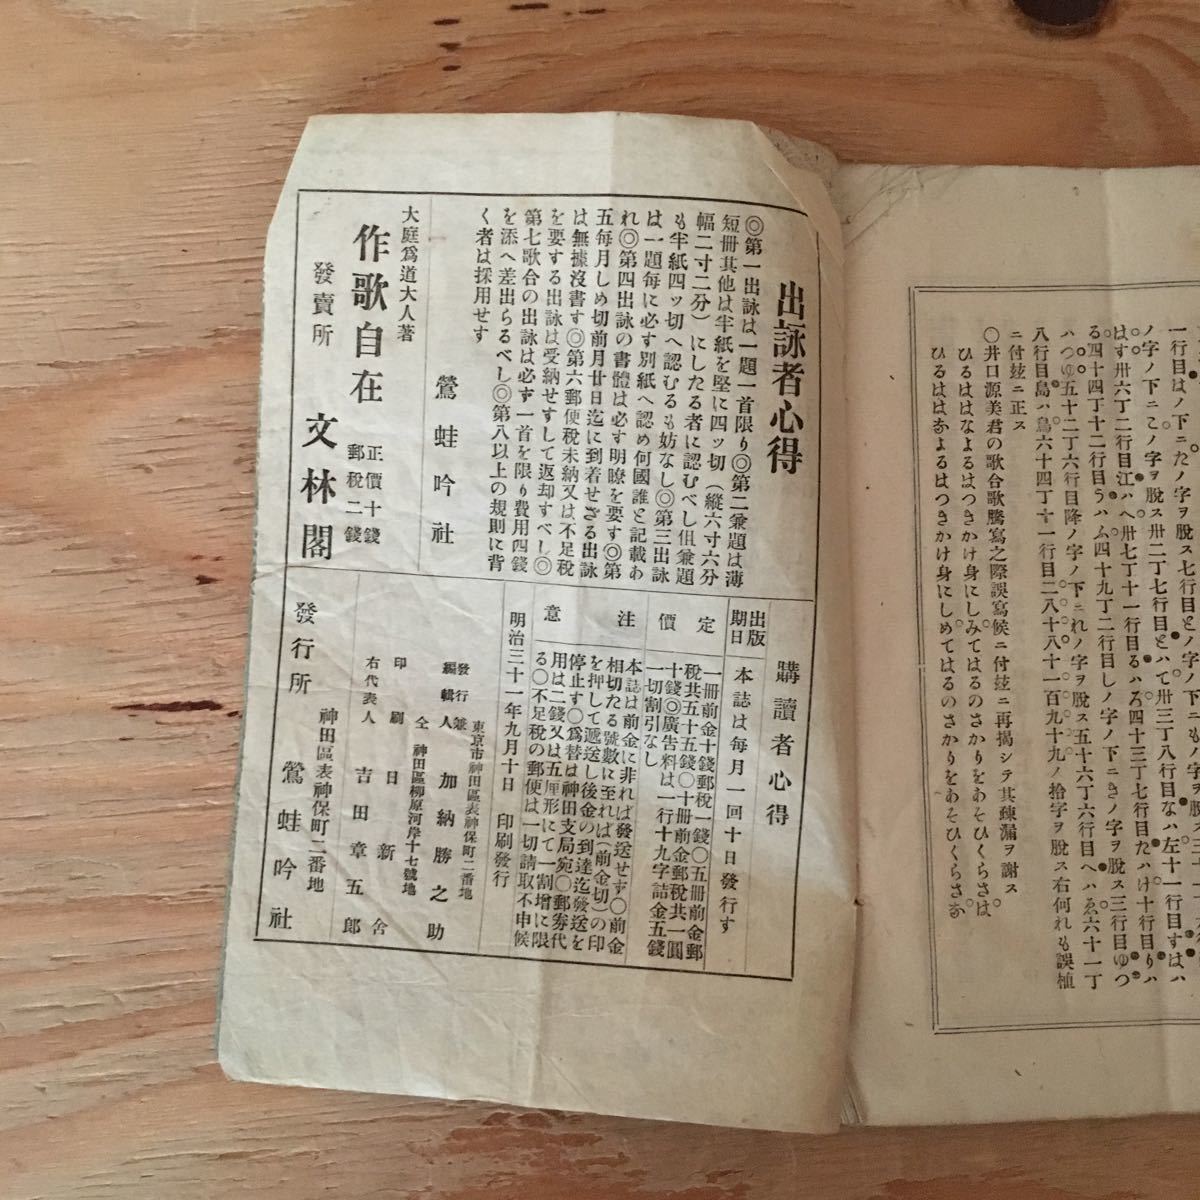 一行目はノ下ニたノ字ヲ脫ス七行目とノ字ノ下ニもノ字ヲ脫ス
ノ字ノ下ニこノ字ヲ脫ス卅二丁七行目とハて卅三丁八行目なハ左十一行目すはハ
はす卅六丁二行目江ハへ卅七丁十一行目るハろ四十三丁七行目たハけ十行目りハ
る四十四丁十二行目うハふ四十九丁二行目しノ字ノ下ニきノ字ヲ脫ス三行目ゆつ
ハつゆ五十二丁六行目降ノ字ノ下ニれノ字ヲ脫ス五十六丁六行目へハゑ六十一丁
八行目島ハ鳥六十四丁十一行目二八十八十一百九十九ノ拾字ヲ脫ス右何れも誤植
ニ付玆ニ正ス
〇井口源美君の歌合歌騰寫之際誤寫候ニ付玆ニ再揭シテ其疎漏ヲ謝ス
ひるははなよるはつきかけ身にしみてはるのさかりをあそひくらさは
ひるははなよるはつきかけ身にしめてはるのさかりをあそひくらさな
出詠者心得
◎第一出詠は一題一首限り◎第二兼題は薄
短冊其他は半紙を堅に四ッ切（縱六寸六分
幅二寸二分）にしたる者に認むべし但兼題
も半紙四ッ切へ認むるも妨なし◎第三出詠
は一題每に必す別紙へ認め何國誰と記載あ
れ◎第四出詠の書體は必す明瞭を要す◎第
五每月しめ切前月廿日迄に到着せざる出詠
は無據沒書す◎第六郵便稅未納又は不足稅
を要する出詠は受納せすして返却すべし◎
第七歌合の出詠は必ず一首を限り費用四錢
を添へ差出らるべし◎第八以上の規則に背
く者は採用せす
鶯蛙吟社
大庭爲道大人著
作歌自在
正價十錢
郵稅二錢
發賣所 文林閣
購讀者心得
出版期日
本誌は每月一回十日發行す
定價
一冊前金十錢郵稅一錢〇五冊前金郵
稅共五十五錢〇十冊前金郵稅共一圓
十錢◎廣告料は一行十九字詰金五錢
一切割引なし
注意
本誌は前金に非れば發送せず〇前金
相切たる號數に至れば（前金切）の印
を押して遞送し後金の到達迄發送を
停止す〇爲替は神田支局宛〇郵券代
用は二錢又は五厘形にて一割增に限
る〇不足稅の郵便は一切請取不申候
明治三十一年九月十日 印刷發行
東京市神田區表神保町二番地
發行兼編輯人 加納勝之助
仝 神田區柳原河岸十七號地
印刷 日新舍
右代表人 吉田章五郎
神田區表神保町二番地
發行所 鶯蛙吟社